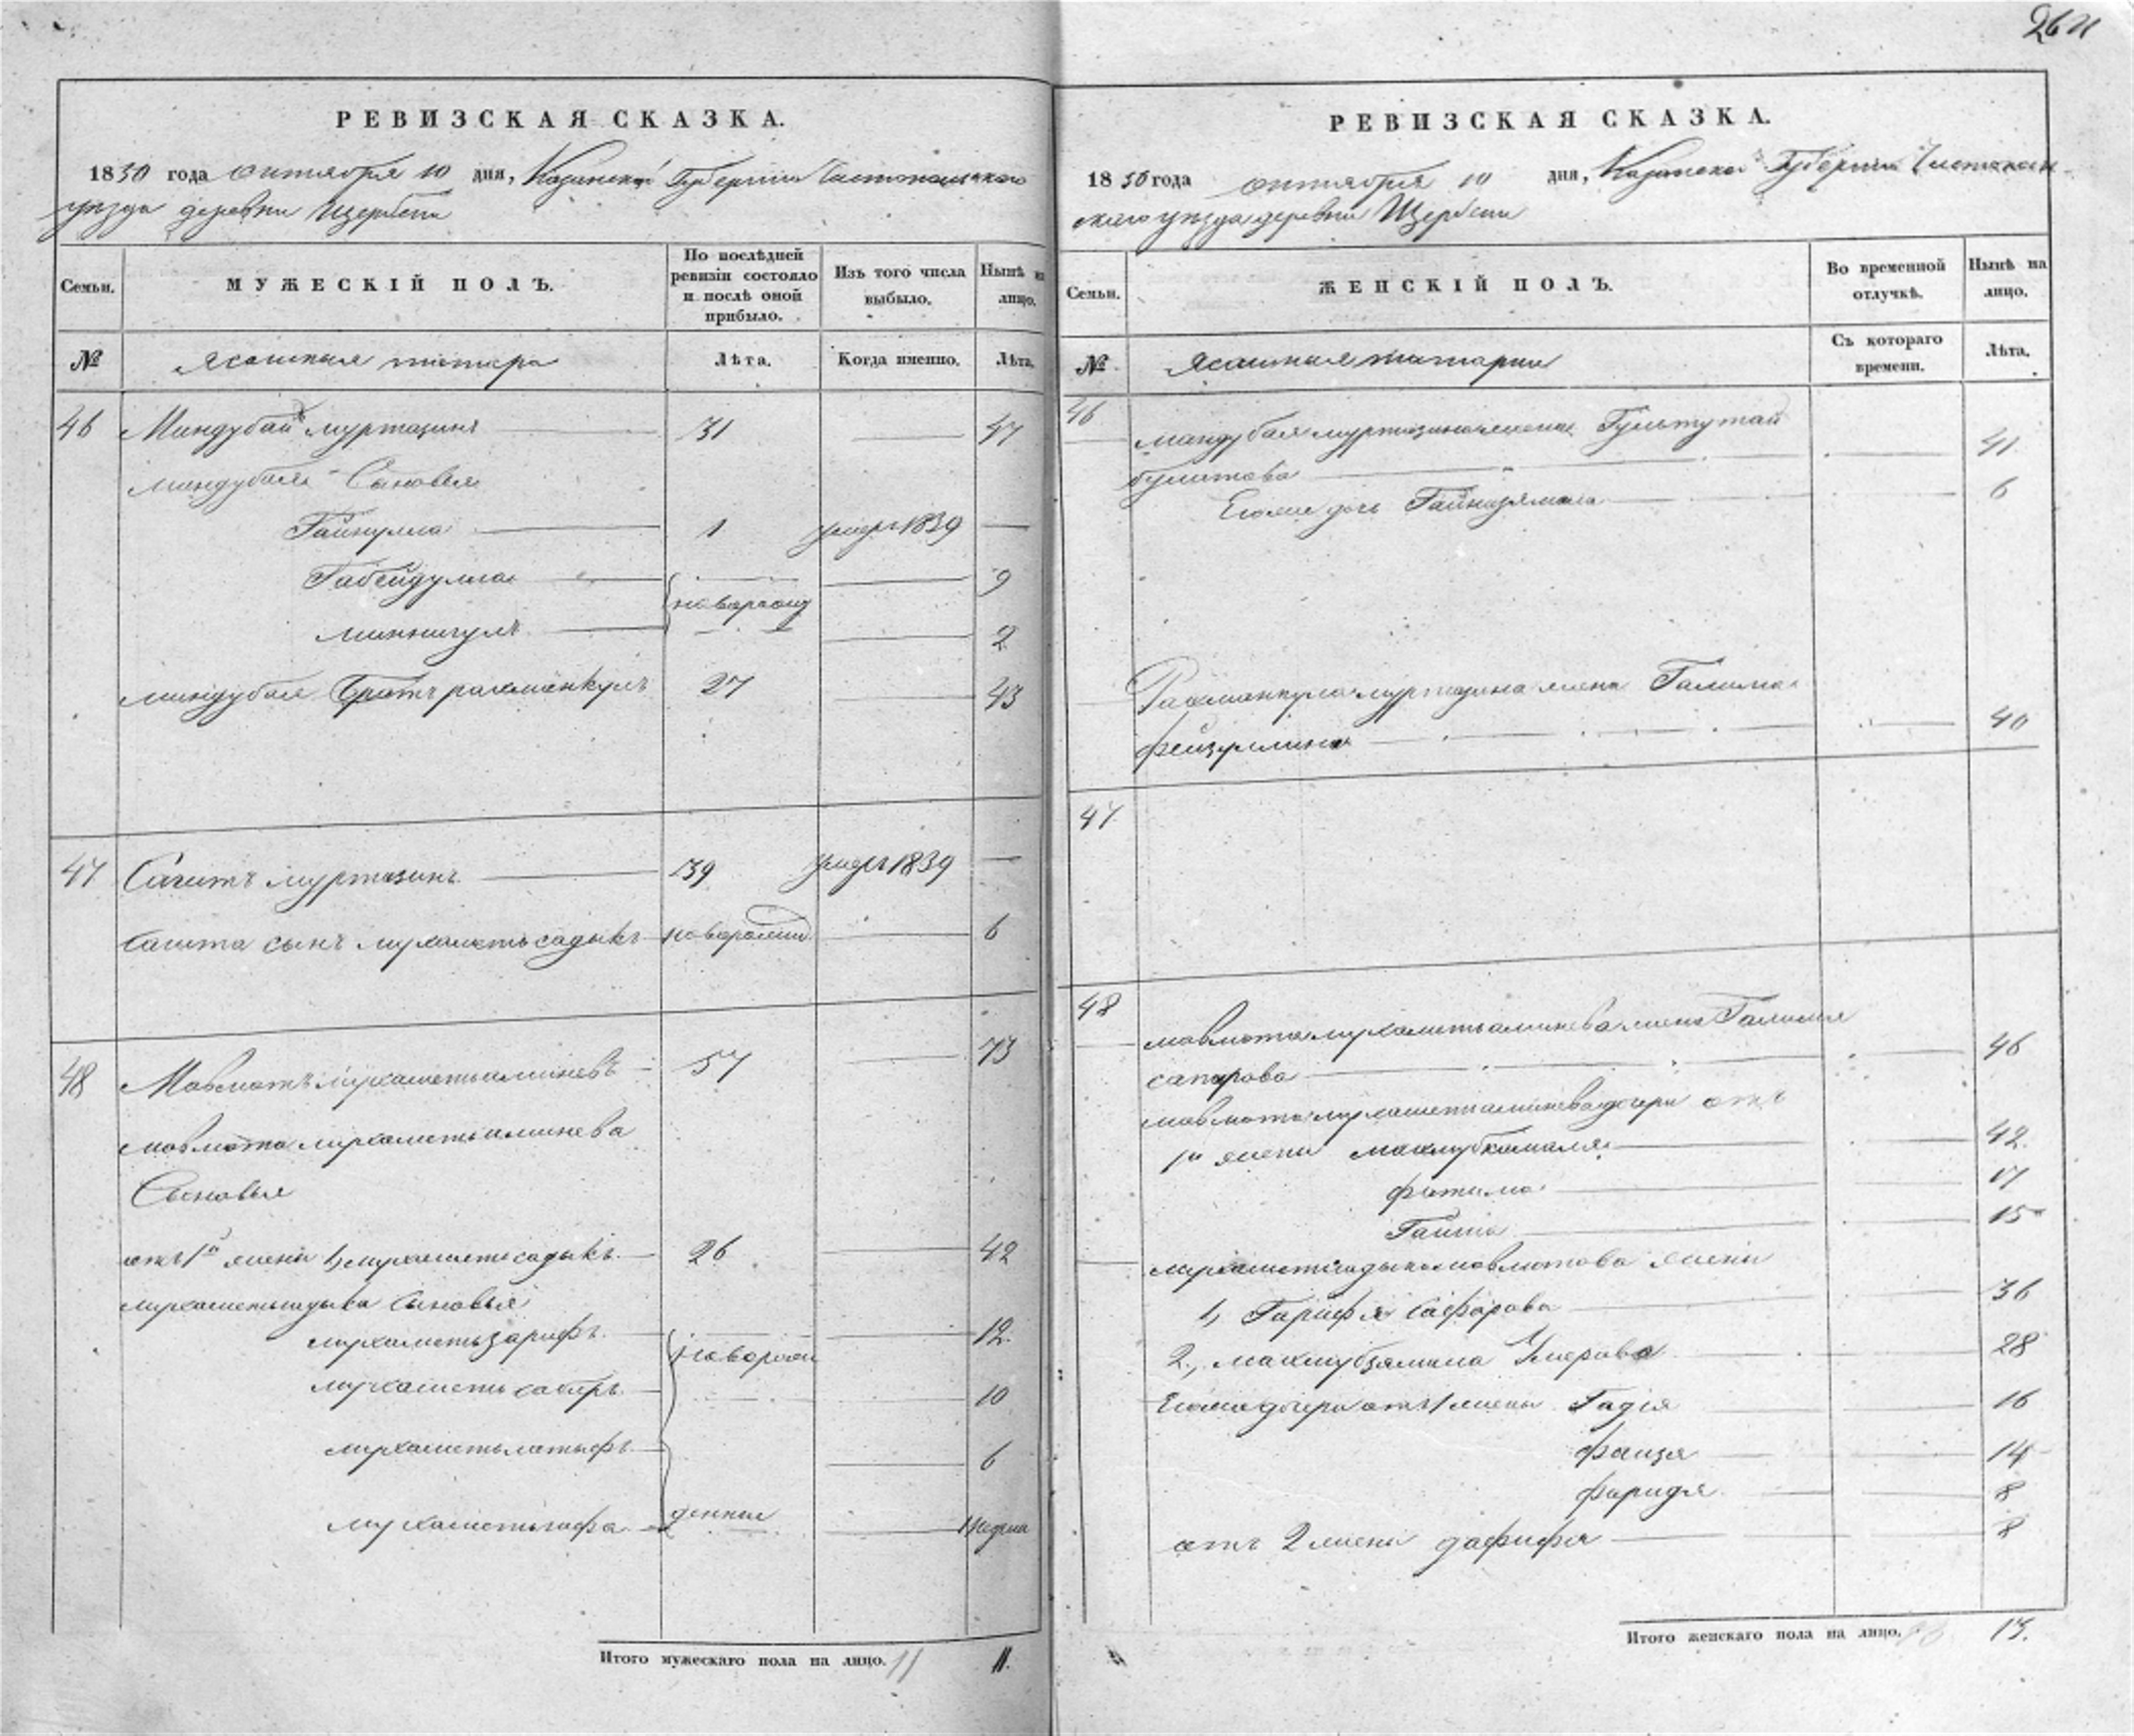 264
РЕВИЗСКАЯ СКАЗКА.
1850 года октября 10 дня, Казанской Губернии Чистопольскаго
уезда деревни Щербени
Семьи.
МУЖЕСКІЙ ПОЛЪ.
По послѣдней ревизіи состояло и послѣ оной прибыло.
Изъ того числа выбыло.
Нынѣ на лицо.
№
Ясашныя татара
Лѣта.
Когда именно.
Лѣта.
46 Миндубай муртазинъ 31 47
миндубая Сыновья
Гайнулла 1 умеръ 1839
Габейдулла 9
новорожд
миннигулъ 2
миндубая братъ рахманкулъ 27 43
47 Сагитъ муртазинъ 39 умеръ 1839
Сагита сынъ мухаметьсадыкъ новорожд 6
48 Мавлютъ мухаметьаминевъ 57 73
мавлюта мухаметьаминева
Сыновья
отъ 1й жены 1, мухаметьсадыкъ 26 42
мухаметьсадыка сыновья
мухаметьзарифъ 12.
новорож
мухаметькабиръ 10
мухаметьлатыфъ 6
мухаметьгафа денные 1 неделя
Итого мужескаго пола на лицо. 11 11.
РЕВИЗСКАЯ СКАЗКА.
1850 года октября 10 дня, Казанской Губернии Чистополь-
скаго уезда деревни Щербени
Семьи.
ЖЕНСКІЙ ПОЛЪ.
Во временной отлучкѣ.
Нынѣ на лицо.
№
Ясашныя татарки
Съ котораго времени.
Лѣта.
46
миндубая муртазина жена Гультутай
булатова 41
Егоже дочь Гайнизямала 6
Рахманкула муртазина жена Галима
фейзуллина 40
47
48
мавлюта мухаметьаминева жена Галимя
сапарова 46
мавлюта мухаметьаминева дочери отъ
1й жены махлубкамаля 42.
фатима 17
Гайша 15
мухаметьсадыка мавлютова жены
1, Гарифя сафарова 36
2., махлубзямила Умерова 28
Егоже дочери отъ 1 жены Гадія 16
фаизя 14
фаридя 8
отъ 2 жены дафифя 8
Итого женскаго пола на лицо. 13.